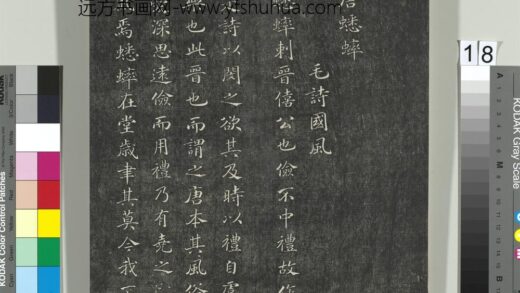 远方书画网-www.yfshuhua.com
蟋蟀
毛詩國風
蟀刺晉僖公也儉不中禮故作
詩以閔之欲其及時以禮自虞
也此晉也而謂之唐本其風俗
深思遠儉而用禮乃有堯之
焉蟋蟀在堂歲聿其莫今我不
18
KODAK Color Control Patches
Black
3/Color
White
Magenta
Red
Yellow
Green
Cyan
KODAK Gray Scale
A
1
2
3
4
5
6
M
8
9
10
11
12
B